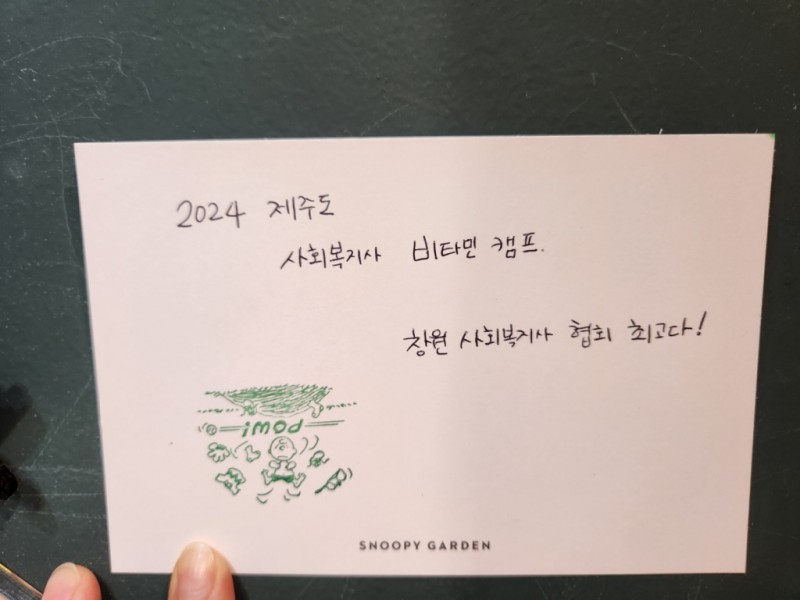 2024 제주도
사회복지사 비타민 캠프.
창원 사회복지사 협회 최고다!
iMOd
SNOOPY GARDEN